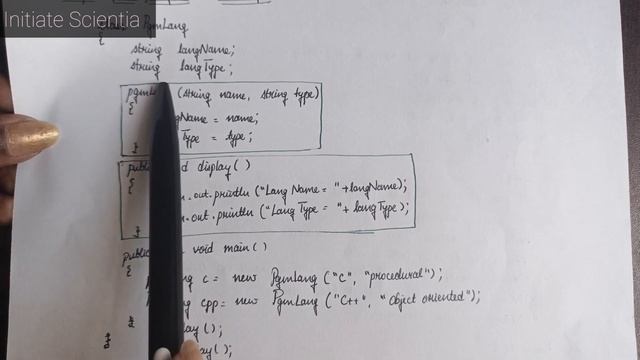 Initiate Scientia
PgmLang
{
string langName;
string langType;
(string name, string type)
{
gName = name;
Type = type;
}
public d display()
{
.out.println ("Lang Name = "+langName);
.out.println ("Lang Type = "+ langType);
}
public void main()
{
g c = new PgmLang ("C", "procedural");
g cpp = new PgmLang ("C++", "object oriented");
lay();
lay();
}